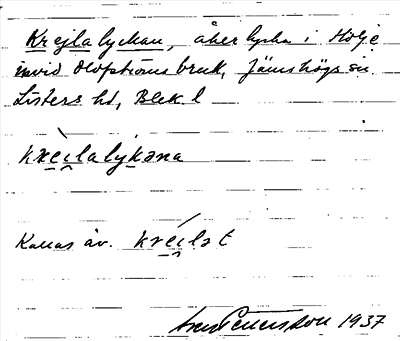 Krejlalyckan, åkerlycka i Holje
invid Olofströms bruk, Jämshögs sn
Listers hd, Blek. l
krei̯lalykəna
Kallas äv. krei̯lət
Pettersson 1937